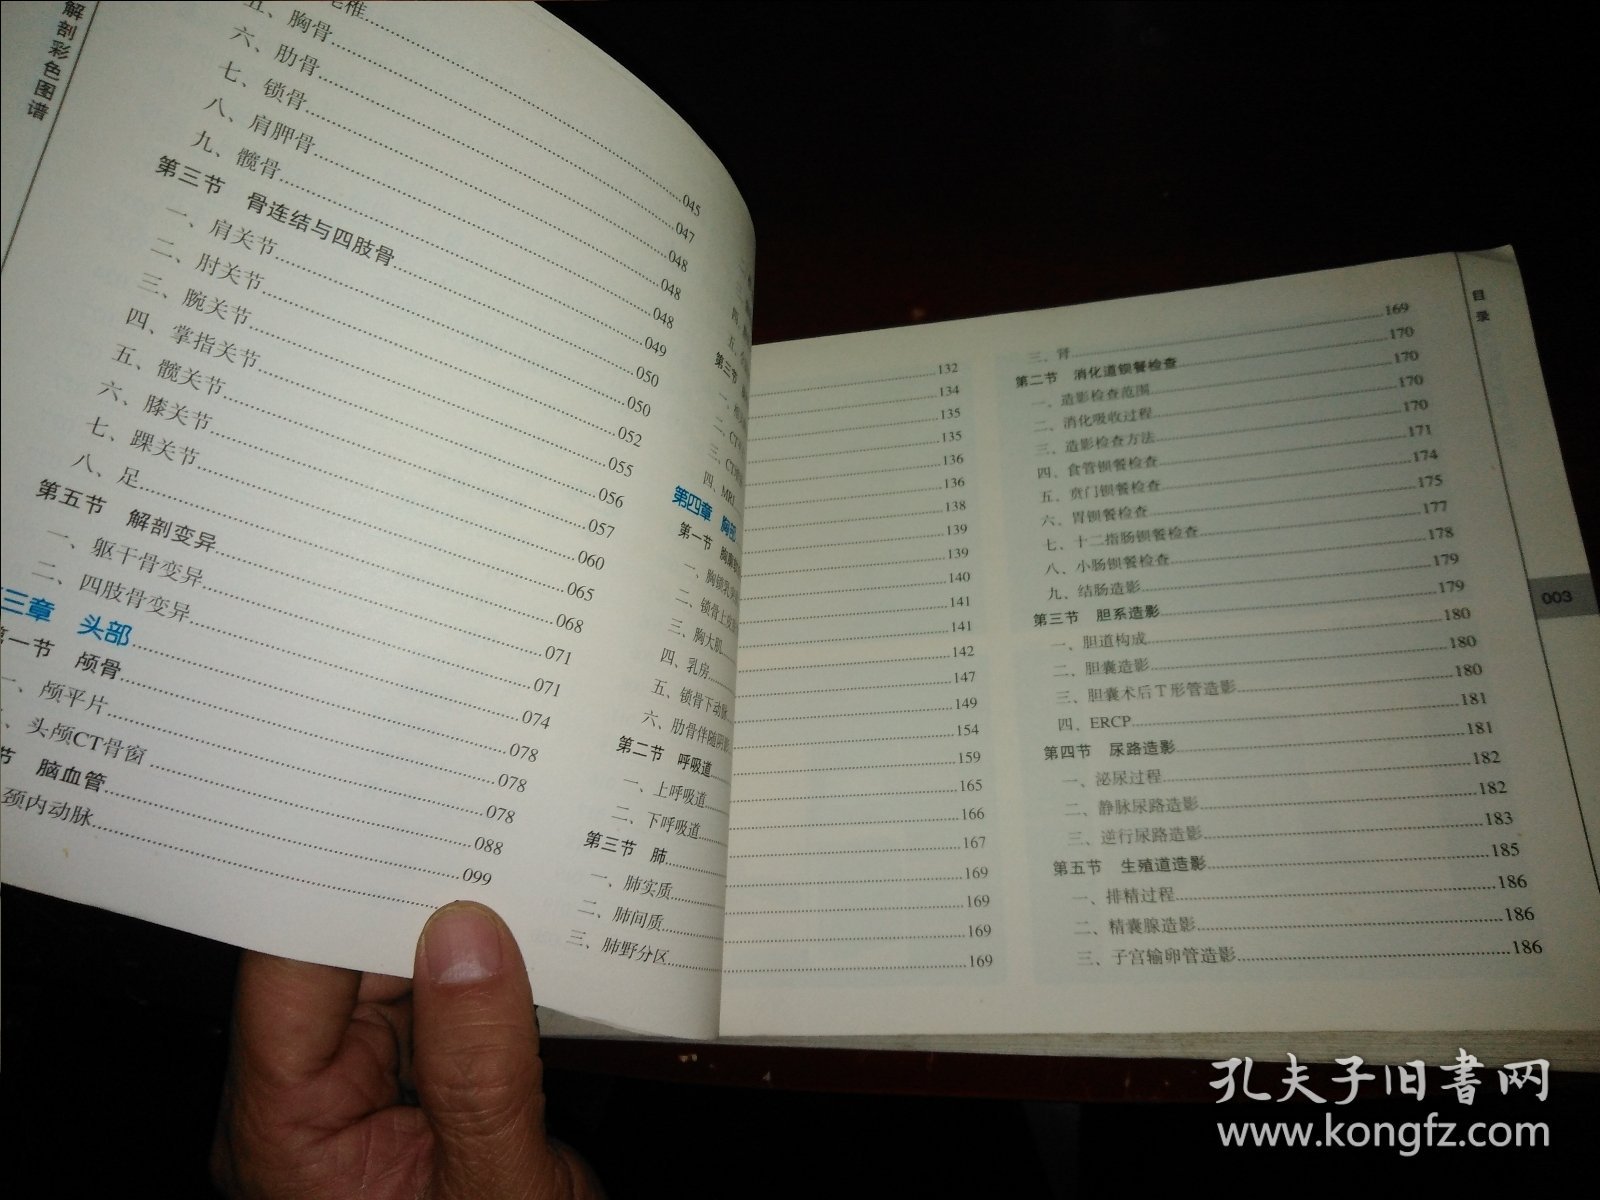 解剖彩色图谱
五、胸骨……045
六、肋骨……047
七、锁骨……048
八、肩胛骨……048
九、髋骨……049
第三节 骨连结与四肢骨……050
一、肩关节……050
二、肘关节……052
三、腕关节……055
四、掌指关节……056
五、髋关节……057
六、膝关节……060
七、踝关节……065
八、足……068
第五节 解剖变异……071
一、躯干骨变异……071
二、四肢骨变异……074
三章 头部……078
第一节 颅骨……078
一、颅平片……078
、头颅CT骨窗……088
节 脑血管……099
颈内动脉……
第三节
二、CT
三、CT
四、MRI
第四章 胸部
第一节 胸廓
一、胸锁乳
二、锁骨上
三、胸大肌
四、乳房
五、锁骨下动脉
六、肋骨伴随阴影
第二节 呼吸道
一、上呼吸道
二、下呼吸道
第三节 肺
一、肺实质
二、肺间质
三、肺野分区
132
134
135
135
136
136
138
139
139
140
141
141
142
147
149
154
159
165
166
167
169
169
169
169
三、肾……169
第二节 消化道钡餐检查……170
一、造影检查范围……170
二、消化吸收过程……170
三、造影检查方法……170
四、食管钡餐检查……171
五、贲门钡餐检查……174
六、胃钡餐检查……175
七、十二指肠钡餐检查……177
八、小肠钡餐检查……178
九、结肠造影……179
第三节 胆系造影……179
一、胆道构成……180
二、胆囊造影……180
三、胆囊术后T形管造影……180
四、ERCP……181
第四节 尿路造影……181
一、泌尿过程……182
二、静脉尿路造影……182
三、逆行尿路造影……183
第五节 生殖道造影……185
一、排精过程……186
二、精囊腺造影……186
三、子宫输卵管造影……186
目录
003
孔夫子旧书网
www.kongfz.com